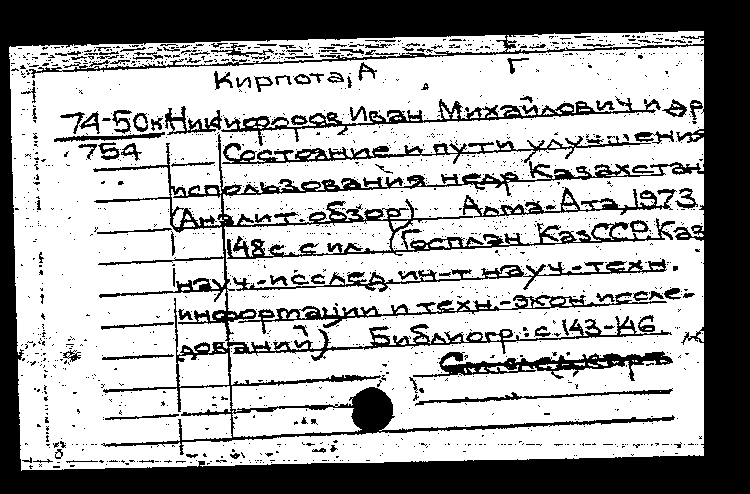 Кирпота, А Г
74-50к Никифоров, Иван Михайлович и др
754 Состояние и пути улучшения
использования недр Казахстан
(Аналит. обзор). Алма-Ата, 1973.
148 с. с ил. (Госплан КазССР. Каз
науч.-исслед. ин-т науч.-техн.
информации и техн.-экон. иссле-
дований) Библиогр.: с. 143-146.
См. след. карт.